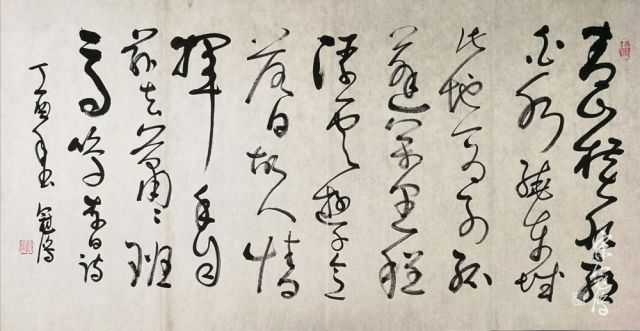 青山横北郭
白水绕东城
此地一为别孤
蓬万里征
浮云游子意
落日故人情
挥手自
兹去萧萧班
马鸣 李白诗
丁酉年书